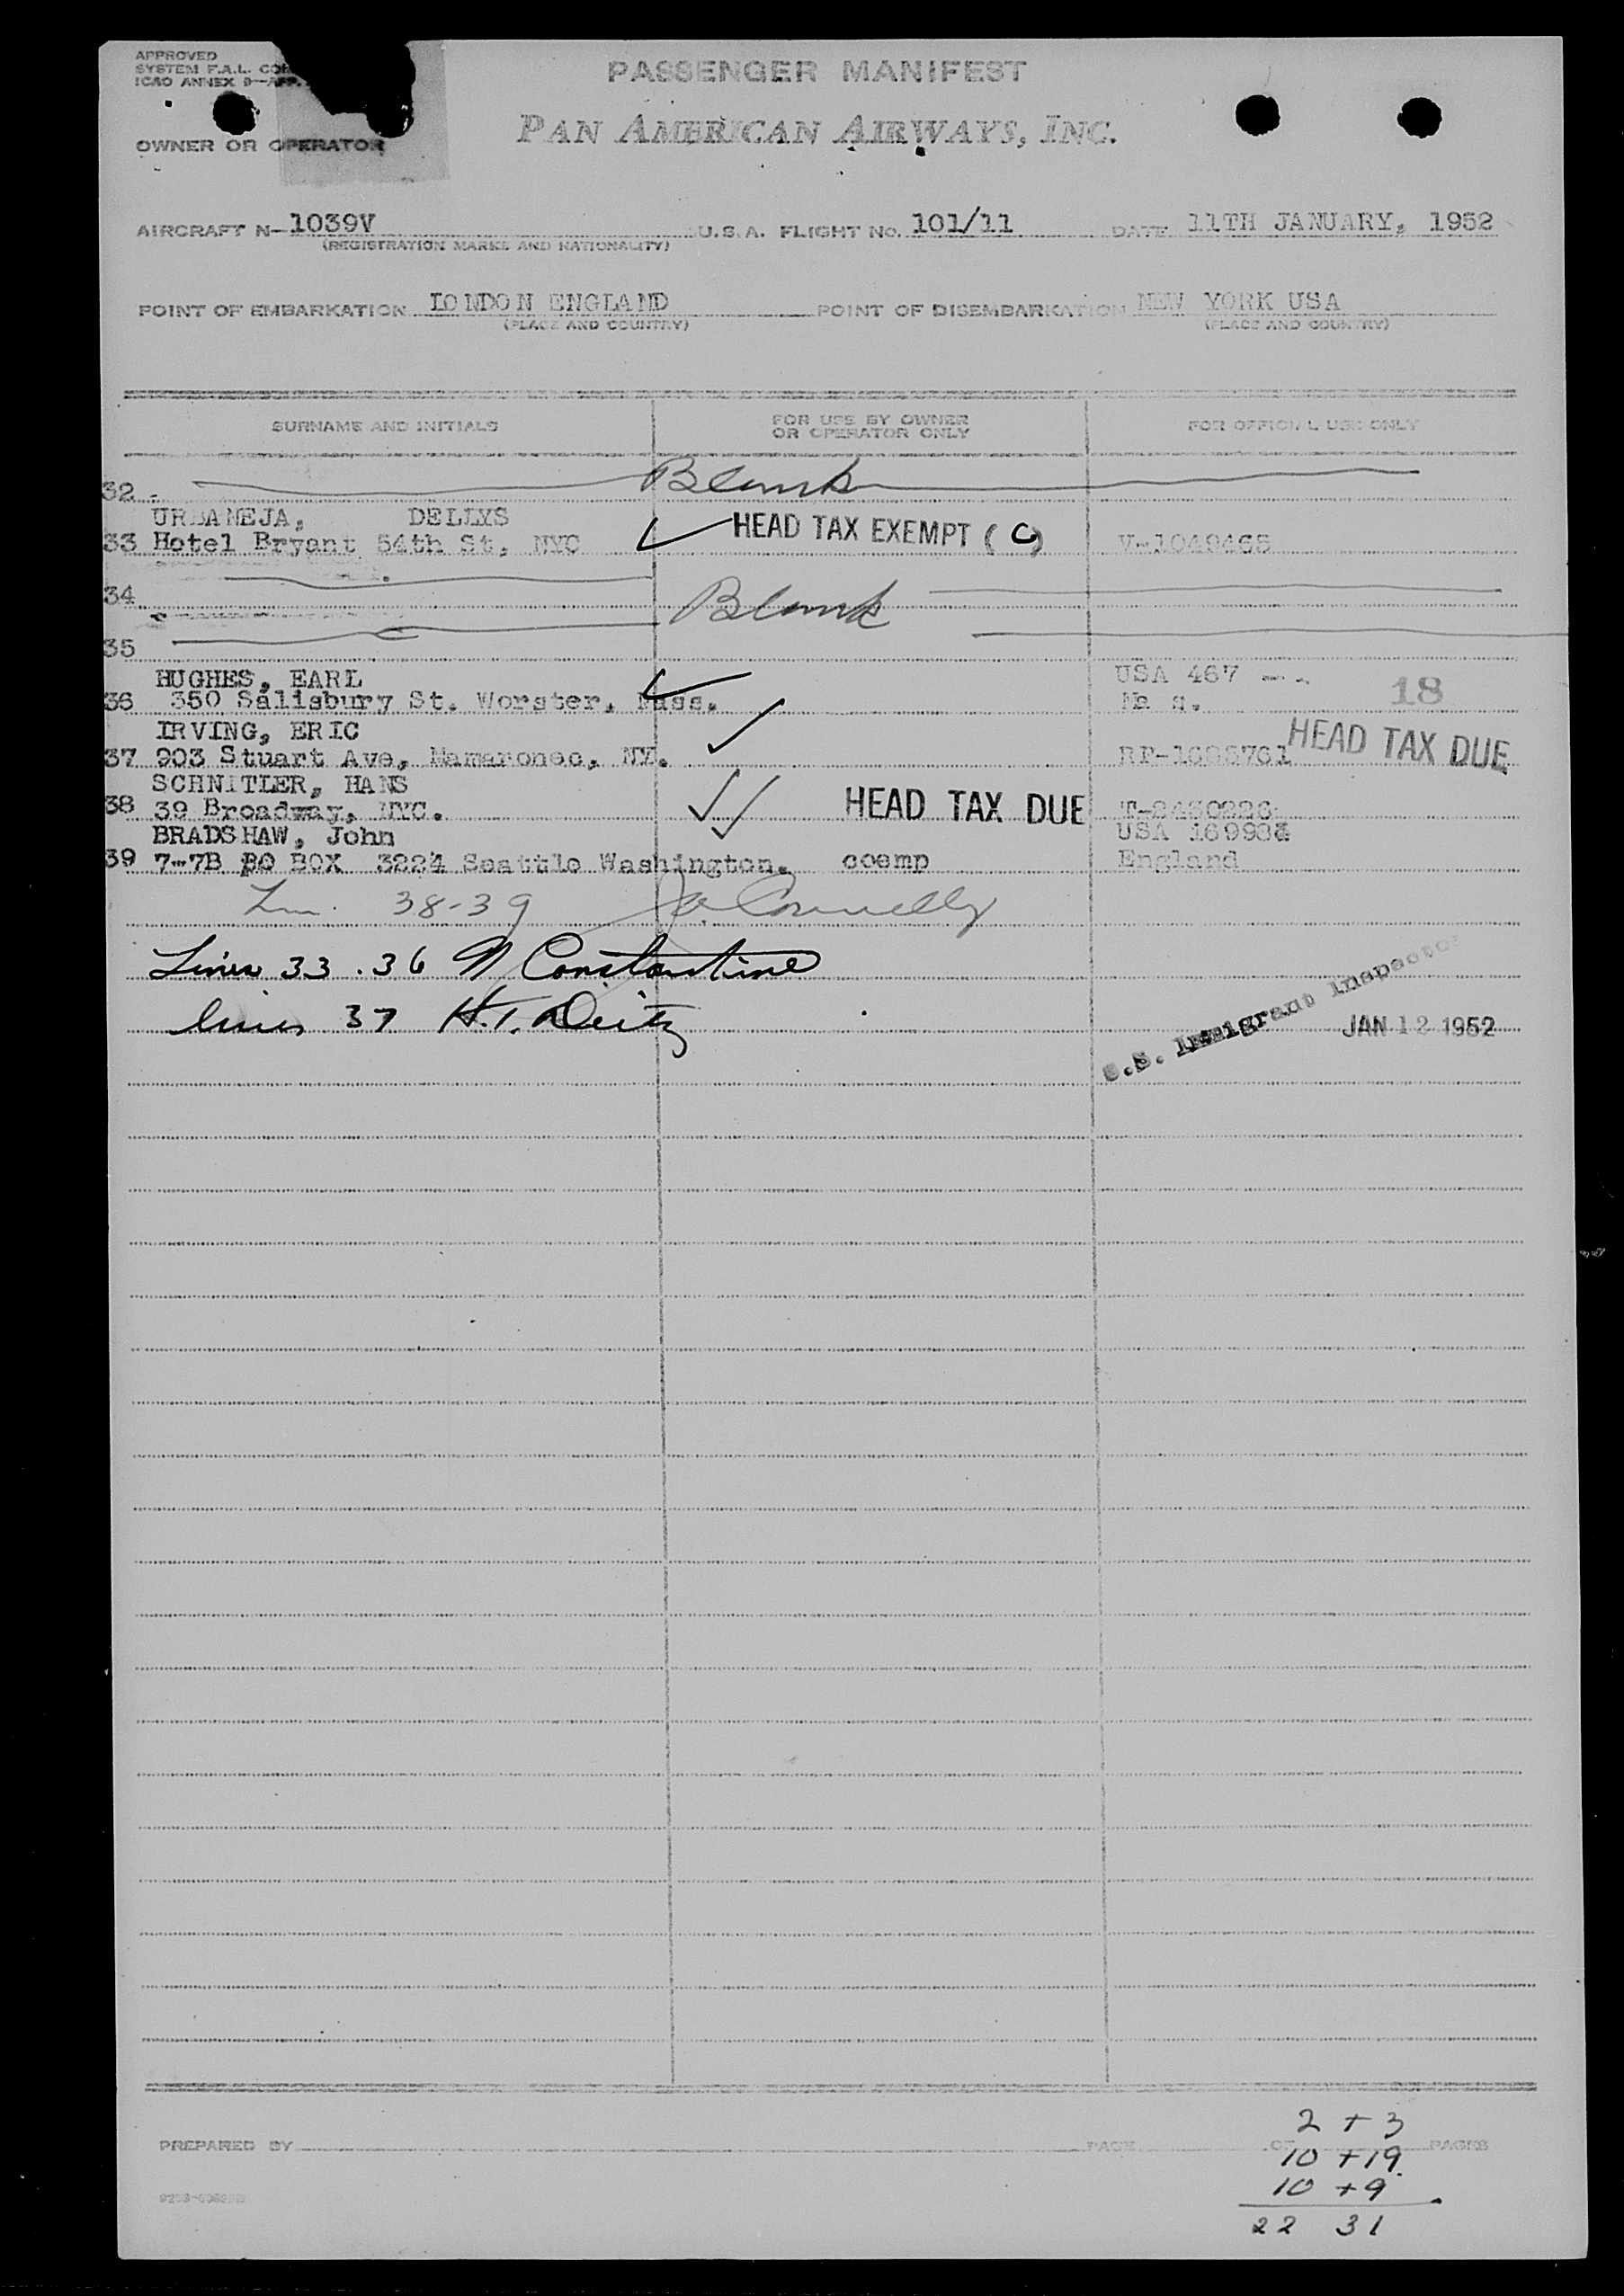 APPROVED
SYSTEM F.A.L.
ICAO ANNEX 9—APP.
PASSENGER MANIFEST
OWNER OR OPERATOR
PAN AMERICAN AIRWAYS, INC.
AIRCRAFT N- 1039V U.S.A. FLIGHT NO. 101/11 DATE 11TH JANUARY, 1952
(REGISTRATION MARKS AND NATIONALITY)
POINT OF EMBARKATION LONDON ENGLAND POINT OF DISEMBARKATION NEW YORK USA
(PLACE AND COUNTRY) (PLACE AND COUNTRY)
SURNAME AND INITIALS FOR USE BY OWNER OR OPERATOR ONLY FOR OFFICIAL USE ONLY
32 Blank
URBANEJA, DELLYS
33 Hotel Bryant 54th St, NYC HEAD TAX EXEMPT (C) V-1049465
34 Blank
35
HUGHES, EARL USA 467
36 350 Salisbury St. Worster, Mass. 18
IRVING, ERIC
37 903 Stuart Ave, Mamaronec, NY. HEAD TAX DUE
SCHNITLER, HANS
38 39 Broadway, NYC. HEAD TAX DUE
BRADSHAW, John USA
39 7-7B PO BOX 3224 Seattle Washington. coemp England
38-39 Connelly
Lines 33.36 N Constantine
lines 37 H.T. Deitz
U.S. Immigrant Inspector
JAN 12 1952
2 + 3
PREPARED BY PAGE OF PAGES
10 + 19
10 + 9
22 31